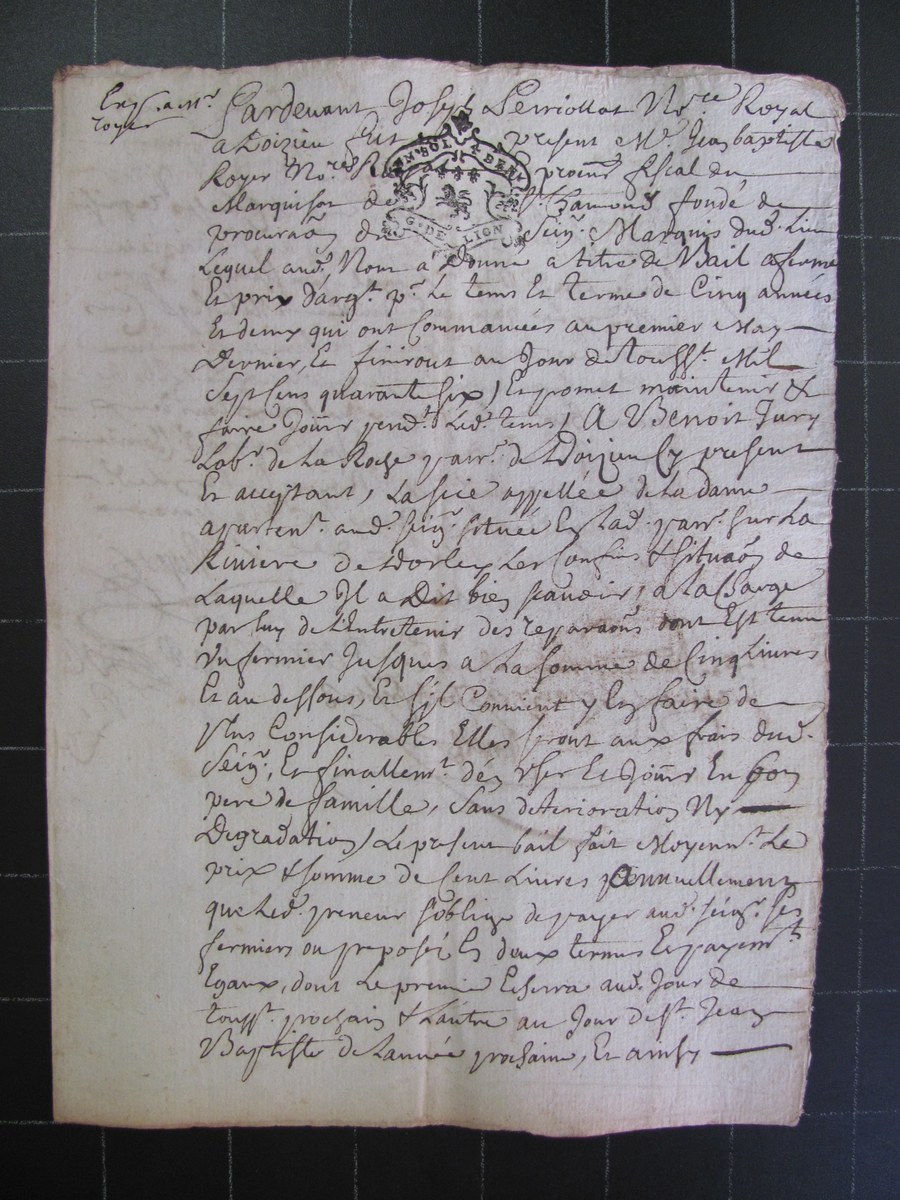 Exp. a Mr
royer
Pardevant Joseph Perriollat Nore Royal
a Doizieu fut present Me. Jean baptiste
Royer Nore procur fiscal du
Marquisat de St. Chamond fondé de
procuraon du Seigr. Marquis dud. Lieu
Lequel aud. Nom a donné a titre de Bail a ferme
Et prix d'argt. pr. Le tems Et terme de Cinq années
Et demy qui ont Commancées au premier May
Dernier, Et finiront au Jour de Toussts. Mil
Sept Cens quarante Six, Et promet maintenir &
faire Jouir pendt. Led. tems, A Benoit Jury
Labr. de La Roche parr. de Doizieu Cy present
Et acceptant, La scie appellée de La dame
apartent. aud. seigr. située En Lad. parr. sur La
Riviere de Dorley Les Confins & situaon de
Laquelle Il a Dit bien sçavoir, a La Charge
par Luy de L'Entretenir des reparaons dont Est tenu
Un fermier Jusques a La somme de Cinq Livres
Et au dessous, Et s'il Convient y En faire de
plus Considerables Elles seront aux frais dud.
Seigr. Et finallemt. d'en User Et Jouir En bon
pere de famille, Sans deterioration Ny
Degradation, Le present bail fait Moyennt. Le
prix & somme de Cent Livres annuellement
que Led. preneur s'oblige de payer aud. seigr. ses
fermiers ou preposés En deux termes Et payemts
Egaux, dont Le premier Echerra au Jour de
Toussts. prochain & L'autre au Jour de St. Jean
Baptiste de L'année prochaine, Et ainsy
G. DE LION